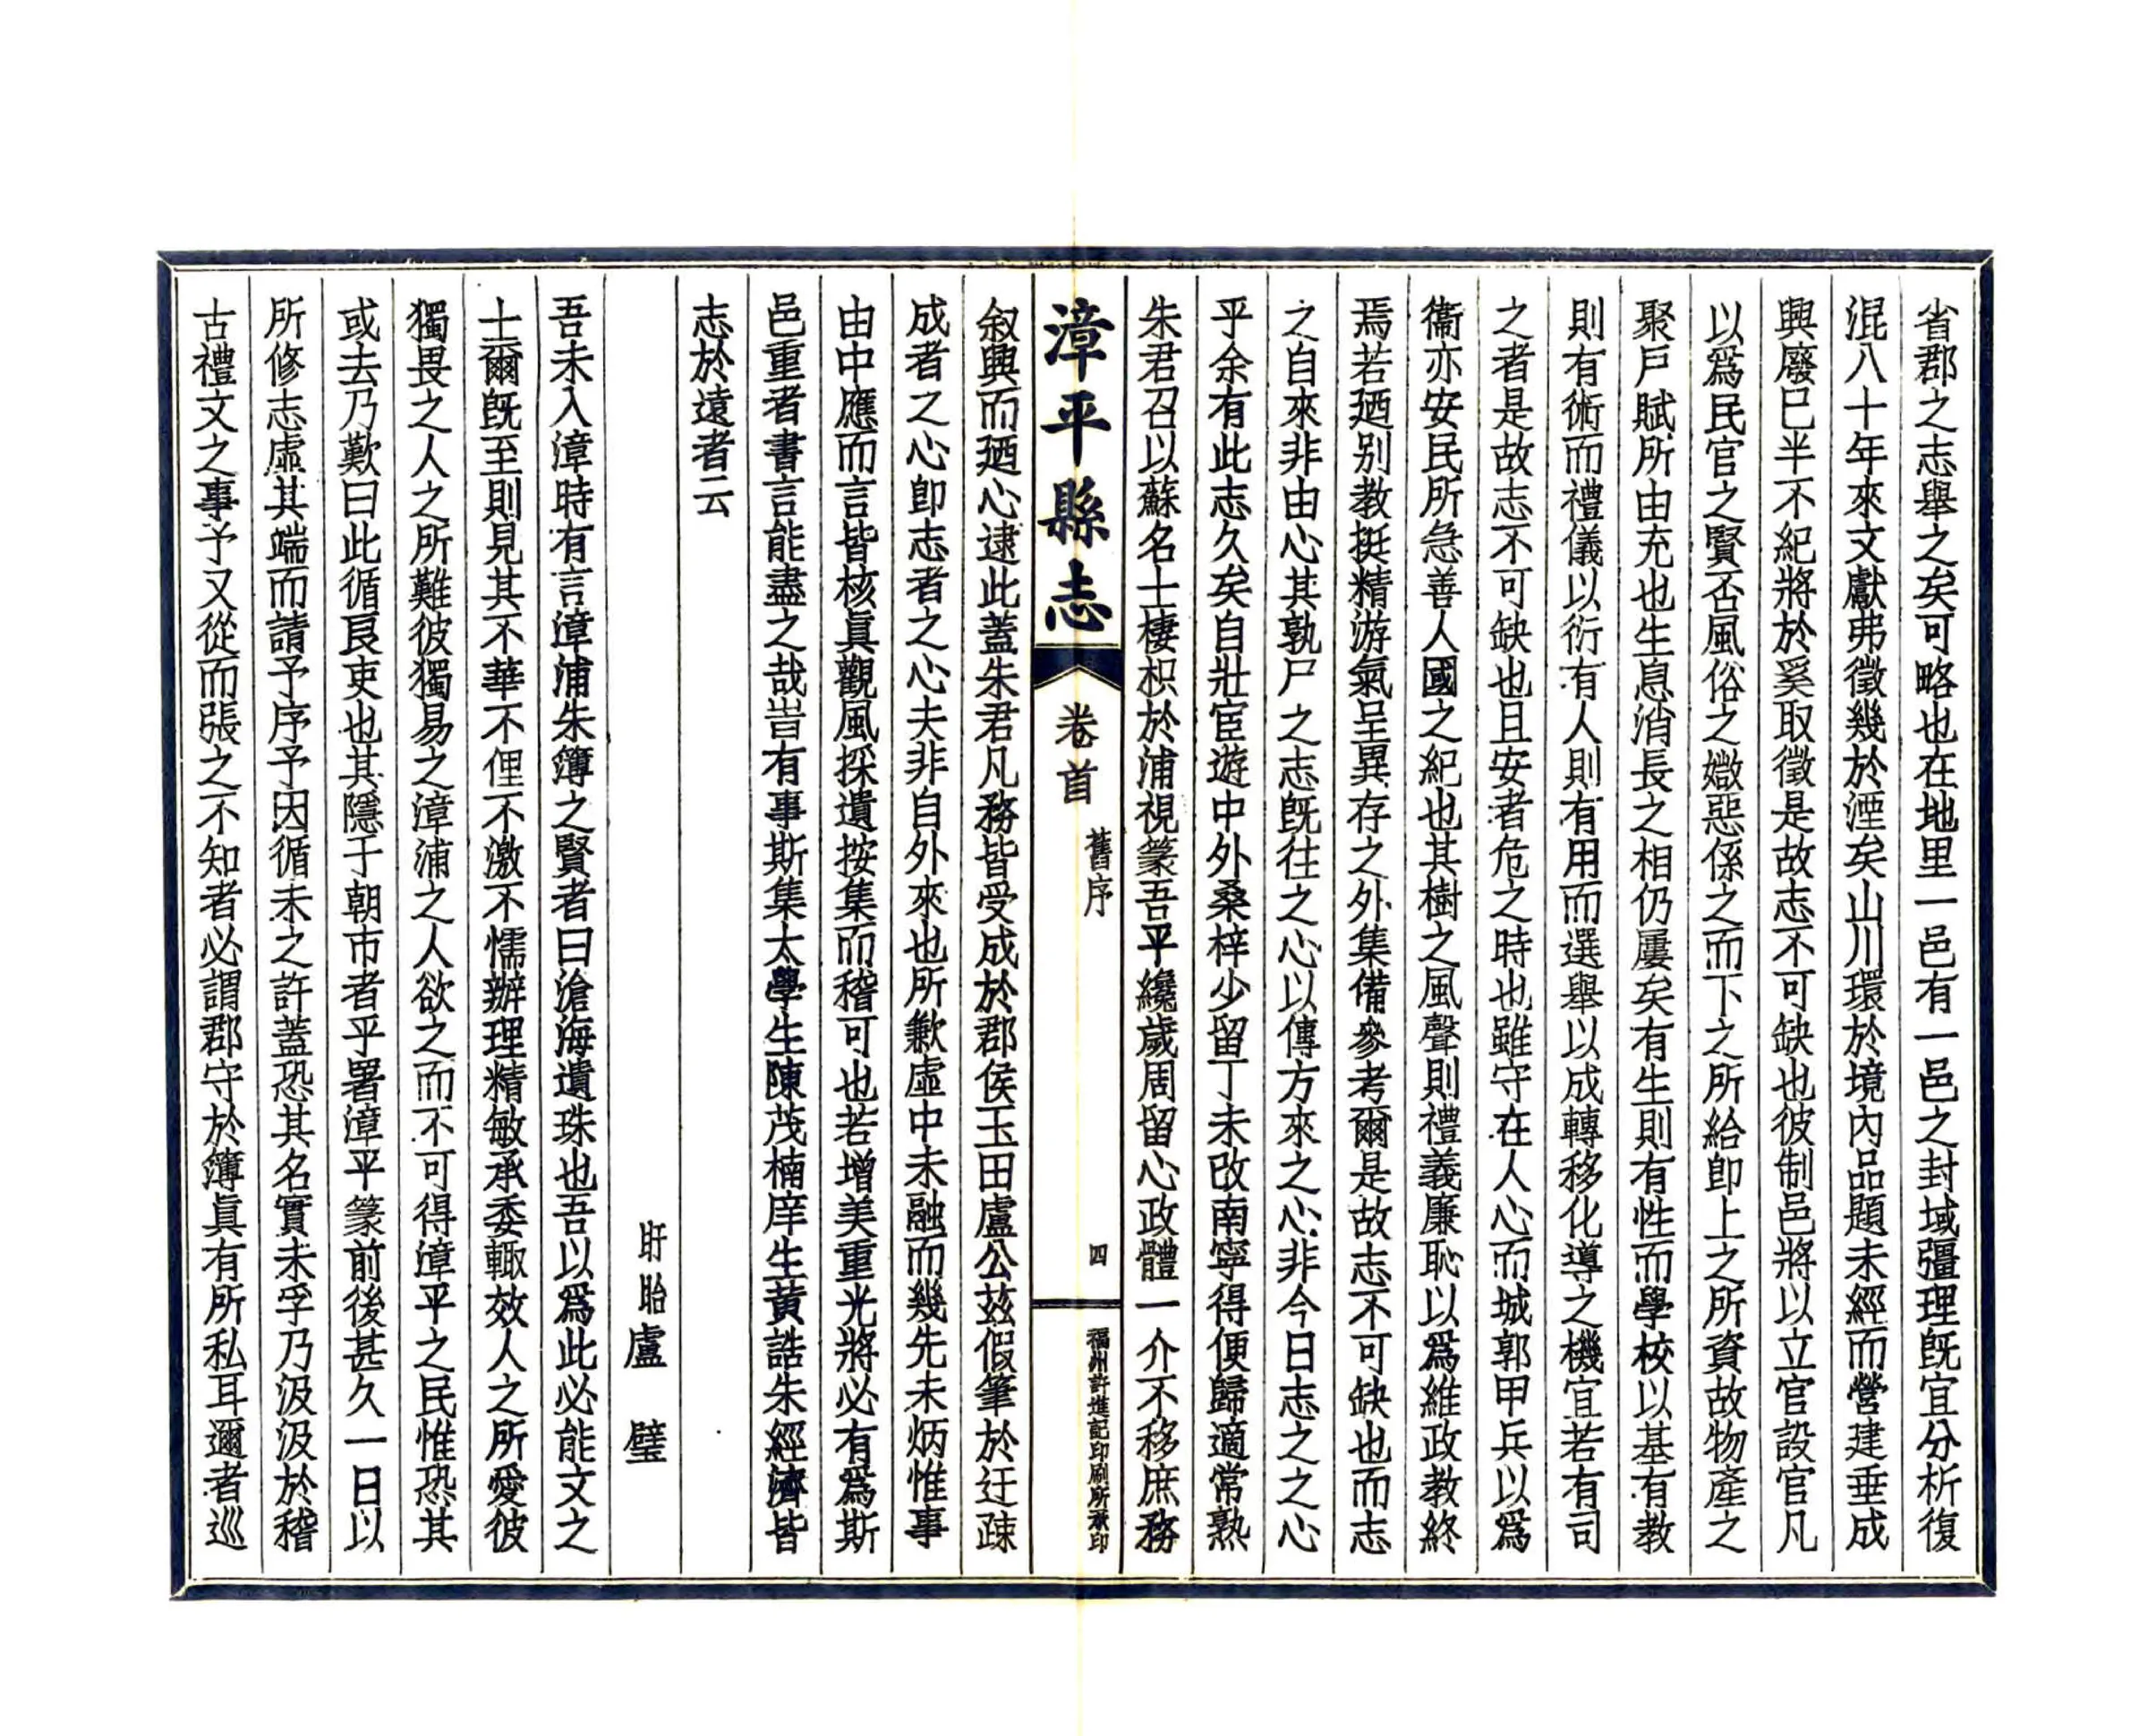 省郡之志舉之矣可略也在地里一邑有一邑之封域彊理旣宜分析復
混八十年來文獻弗徵幾於湮矣山川環於境內品題未經而營建垂成
興廢巳半不紀將於奚取徵是故志不可缺也彼制邑將以立官設官凡
以爲民官之賢否風俗之媺惡係之而下之所給卽上之所資故物產之
聚戶賦所由充也生息消長之相仍屢矣有生則有性而學校以基有教
則有術而禮儀以衍有人則有用而選舉以成轉移化導之機宜若有司
之者是故志不可缺也且安者危之時也雖守在人心而城郭甲兵以爲
衞亦安民所急善人國之紀也其樹之風聲則禮義廉恥以爲維政教終
焉若廼別教挺精游氣呈異存之外集備參考爾是故志不可缺也而志
之自來非由心其孰尸之志旣往之心以傳方來之心非今日志之之心
乎余有此志久矣自壯宦遊中外桑梓少留丁未改南寧得便歸適常熟
朱君召以蘇名士棲枳於浦視篆吾平纔歲周留心政體一介不移庶務
漳平縣志
卷首
舊序
四
福州許進記印刷所承印
叙興而廼心逮此蓋朱君凡務皆受成於郡侯玉田盧公茲假筆於迂疎
成者之心卽志者之心夫非自外來也所歉虛中未融而幾先未炳惟事
由中應而言皆核眞觀風採遺按集而稽可也若增美重光將必有爲斯
邑重者書言能盡之哉旹有事斯集太學生陳茂楠庠生黃誥朱經濟皆
志於遠者云
盱眙盧璧
吾未入漳時有言漳浦朱簿之賢者曰滄海遺珠也吾以爲此必能文之
士爾旣至則見其不華不俚不激不懦辦理精敏承委輒效人之所愛彼
獨畏之人之所難彼獨易之漳浦之人欲之而不可得漳平之民惟恐其
或去乃歎曰此循良吏也其隱于朝市者乎署漳平篆前後甚久一日以
所修志虛其端而請予序予因循未之許蓋恐其名實未孚乃汲汲於稽
古禮文之事予又從而張之不知者必謂郡守於簿眞有所私耳邇者巡